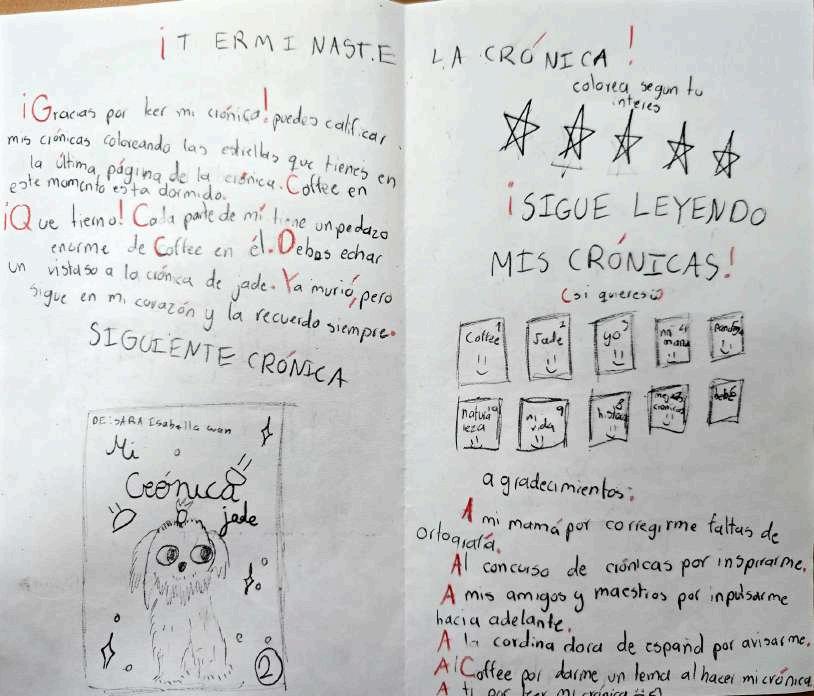 ¡TERMINASTE LA CRÓNICA!
¡Gracias por leer mi crónica! puedes calificar
mis crónicas coloreando las estrellas que tienes en
la última página de la crónica. Coffee en
este momento esta dormido.
¡Que tierno! Cada parte de mí tiene un pedazo
enorme de Coffee en él. Debes echar
un vistaso a la crónica de jade. Ya murió, pero
sigue en mi corazón y la recuerdo siempre.
SIGUIENTE CRÓNICA
DE: SARA Isabella
Mi
Crónica
jade
2
colorea segun tu
interes
¡SIGUE LEYENDO
MIS CRÓNICAS!
(si quieres)
Coffee 1
Jade 2
yo 3
mi mamá 4
5
6
natura leza
mi vida 9
8
crónicas
agradecimientos:
A mi mamá por corregirme faltas de
ortografía.
Al concurso de crónicas por inspirarme.
A mis amigos y maestros por inpulsarme
hacia adelante.
A la cordinadora de español por avisarme.
Al Coffee por darme un tema al hacer mi crónica
A ti por leer mi crónica